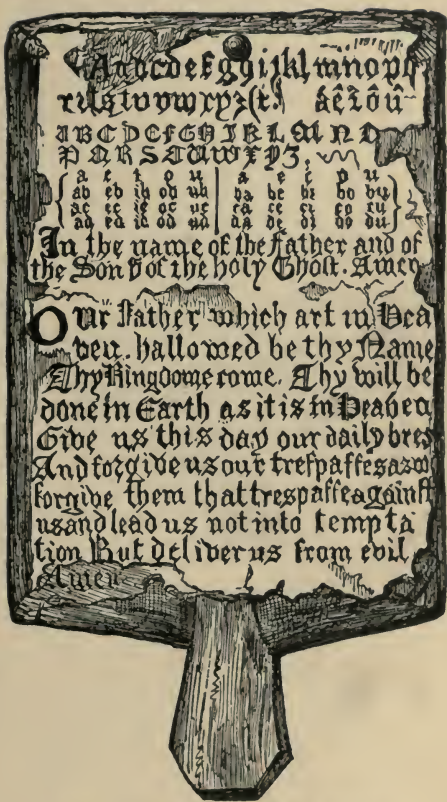 Aabcdefgghijklmnopq
rzſstuvvwxyz&. áêîôû
ABCDEFGHIJKLMNO
PQRSTUWXYZ,
a e i o u | a e i o u
ab eb ib ob ub | ba be bi bo bu
ac ec ic oc uc | ca ce ci co cu
ad ed id od ud | da de di do du
In the name of the father and of
the Son & of the holy Ghoſt. Amen
Our Father which art in Hea
ven. hallowed be thy Name
Thy Kingdome come. Thy will be
done in Earth as it is in Heaven
Give us this day our daily bred
And forgive us our treſpaſſes as we
forgive them that treſpaſſe againſt
us and lead us not into tempta
tion But deliver us from evil
Amen